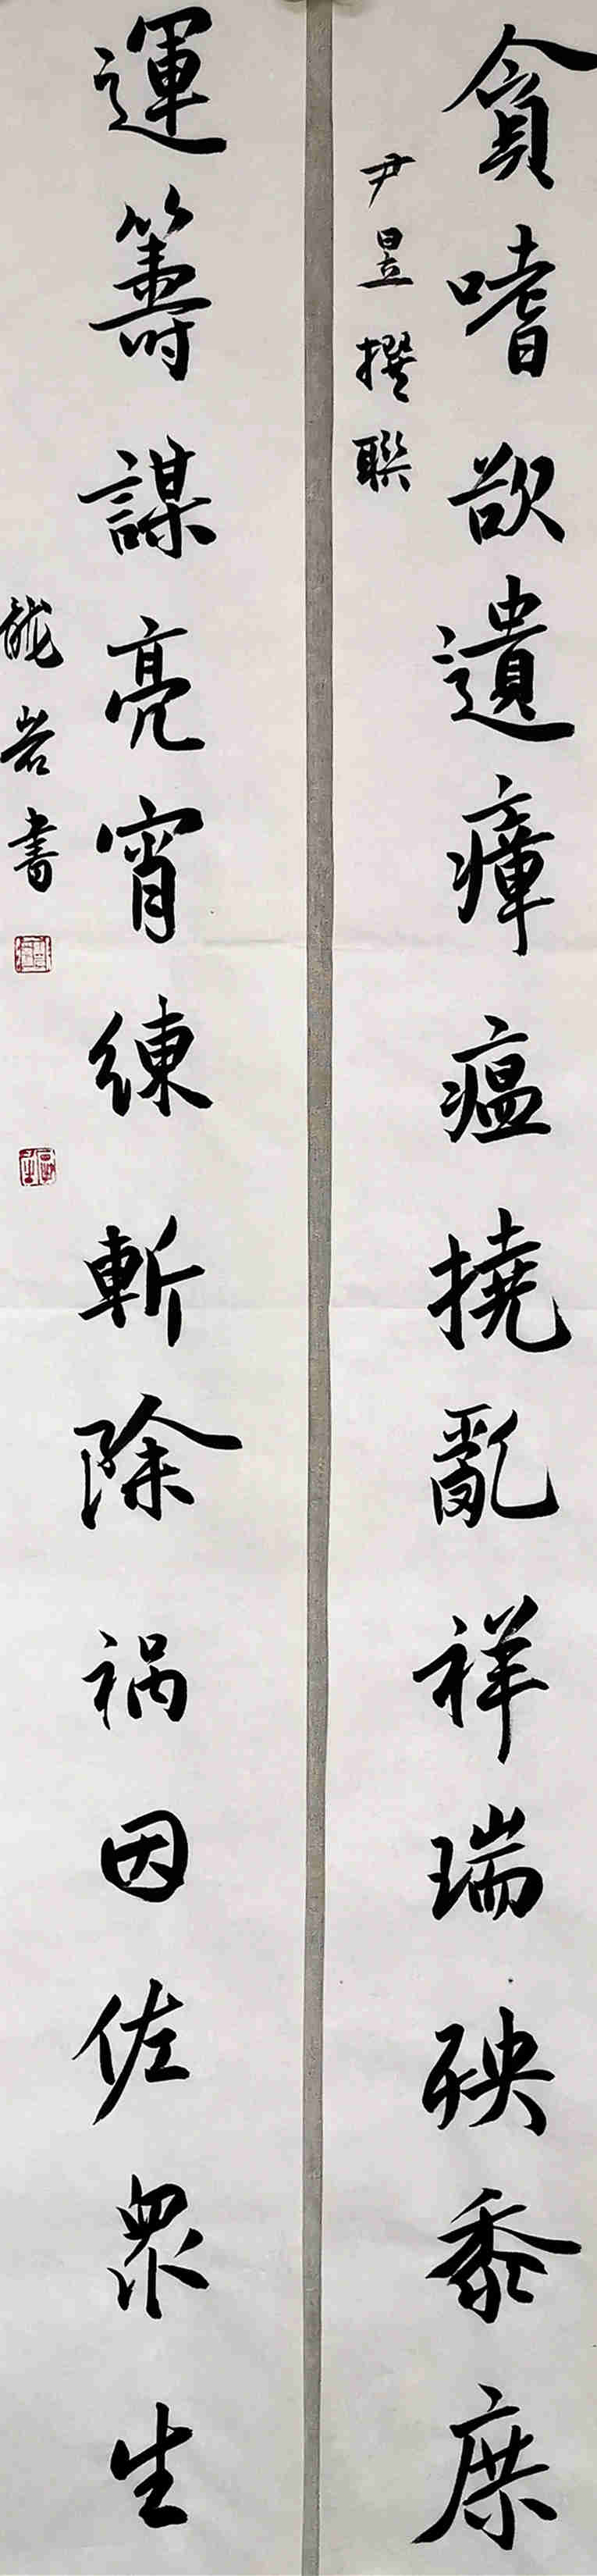 貪嗜欲遺瘴瘟撓亂祥瑞殃黍庶
尹昱撰聯
運籌謀亮宵練斬除祸因佐眾生
岩書